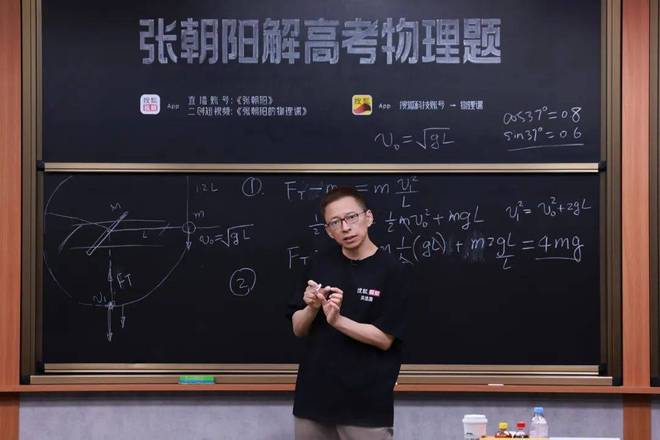 张朝阳解高考物理题
搜狐视频
App
直播账号:《张朝阳》
二创短视频:《张朝阳的物理课》
搜狐
App
搜狐科技账号 → 物理课
v₀=√gL
cos37°=0.8
sin37°=0.6
1.2L
m
m
L
v₀=√gL
FT
v₁
①
F_T - mg = m v₁²/L
½mv₀²+mgL
v₁²=v₀²+2gL
(gL)+m2gL/L=4mg
②
搜狐